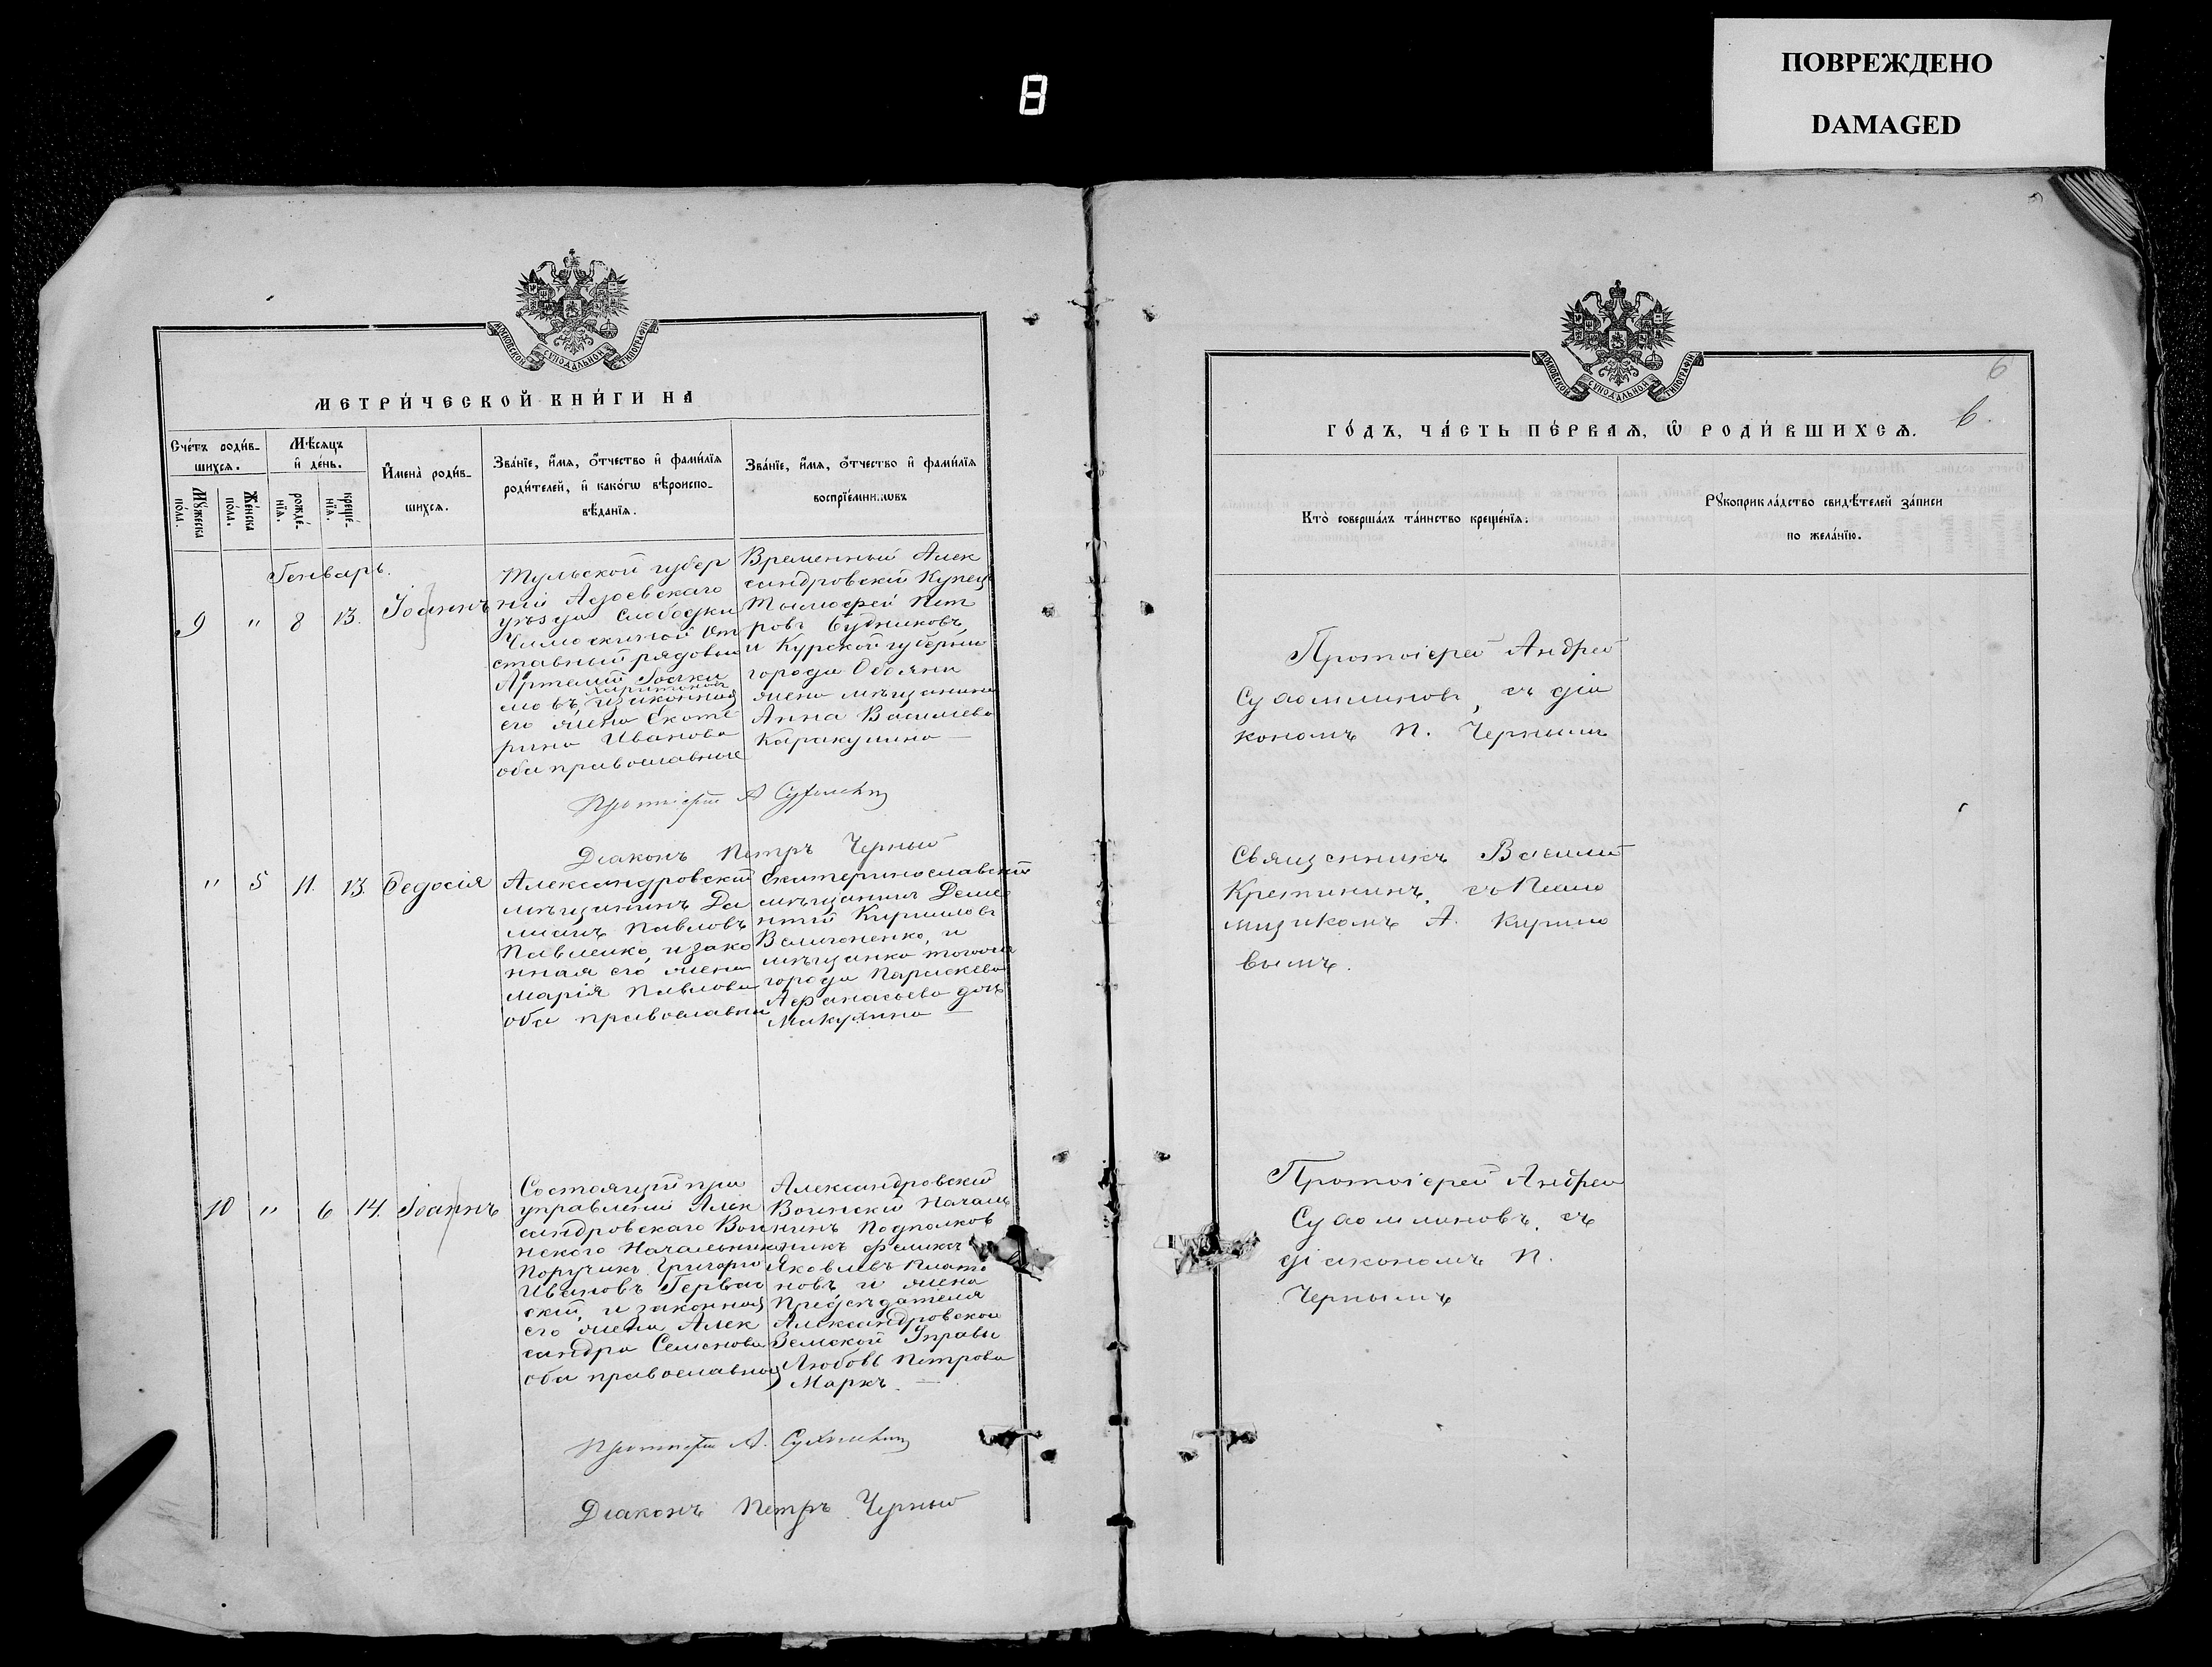 ПОВРЕЖДЕНО
DAMAGED
8
МОСКОВСКОЙ СѴНОДАЛЬНОЙ ТИПОГРАФІИ
МЕТРИ́ЧЕСКОЙ КНИ́ГИ НА
Сче́тъ роди́в-
шихсѧ.
Мѣ́сѧцъ
и҆ де́нь.
И҆мена̀ роди́в-
шихсѧ.
Зва́нїе, и҆́мѧ, ѻ҆́тчество и҆ фами́лїѧ
роди́телей, и҆ како́гѡ вѣроиспо-
вѣ́данїѧ.
Зва́нїе, и҆́мѧ, ѻ҆́тчество и҆ фами́лїѧ
воспрїе́мниковъ
Мꙋ́жеска
по́ла.
Же́нска
по́ла.
рожде́-
нїѧ.
креще́-
нїѧ.
Генварь.
9 " 8 13. Іоаннъ
Тульской губер
ніи
уѣзда Слободки
От
ставный рядовый
Артемій
Харитоновъ
и законная
его жена Екате
рина Иванова
оба православные
Временный Алек
сандровскій Купецъ
Тимофей Пет
ровъ Будниковъ,
и Курской губерніи
города Обояни
жена мѣщанина
Анна Васильева
Каракулина —
Протоіерей А Сухомлинов
Діаконъ Петръ Черный
" 5 11. 13 Ѳедосія
Александровскій
мѣщанинъ Да
міанъ Павловъ
Павленко, и зако
нная его жена
Марія Павлова
оба православные
Екатеринославскій
мѣщанинъ Демен
тій Кириловъ
и
мѣщанка тогоже
города Параскева
Афанасьева дочь
Макухина —
10 " 6 14. Іоаннъ
Состоящій при
управленіи Алек
сандровскаго Вои
нскаго Начальника
Поручикъ Григорій
Ивановъ Герва
скій, и законная
его жена Алек
сандра Семенова
оба православные
Александровскій
Воинскій Началь
никъ Подполков
никъ Феликсъ
Яковлевъ Плато
новъ и жена
Предсѣдателя
Александровской
Земской Управы
Любовь Петрова
Маркъ. —
Протоіерей А. Сухомлинов
Діаконъ Петръ Черный
МОСКОВСКОЙ СѴНОДАЛЬНОЙ ТИПОГРАФІИ
6
6.
ГО́ДЪ, ЧА́СТЬ ПЕ́РВАѦ, Ѽ РОДИ́ВШИХСѦ.
Кто̀ соверша́лъ та́инство креще́нїѧ.
Рꙋкоприкла́дство свидѣ́телей за́писи
по жела́нїю.
Протоіерей Андрей
Сухомлиновъ, съ діа
кономъ П. Чернымъ
Священникъ Василій
Кретининъ, съ Псало
мщикомъ А. Кирило
вымъ.
Протоіерей Андрей
Сухомлиновъ, съ
діакономъ П.
Чернымъ